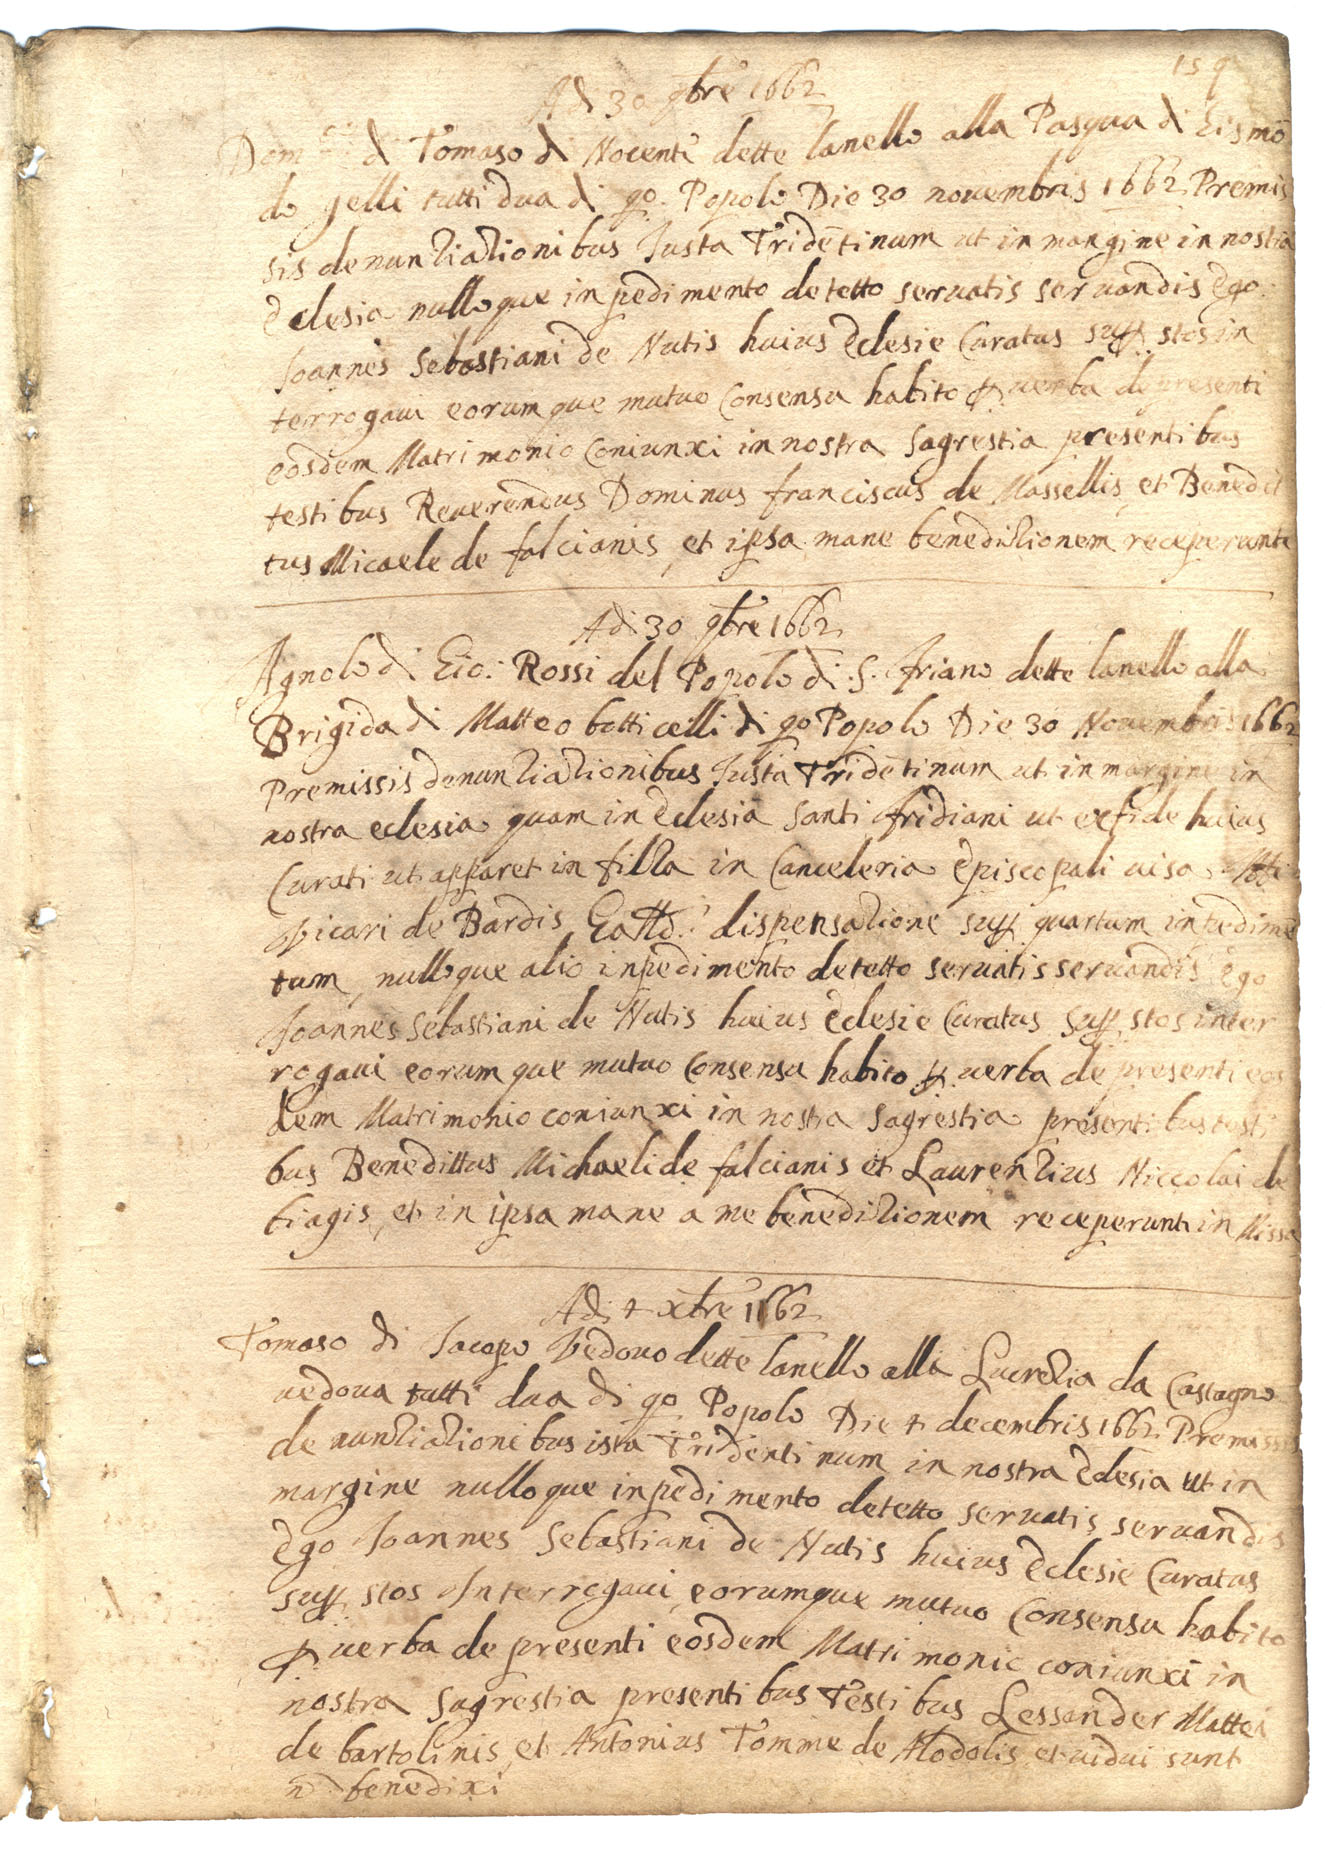 159
Adi 30 9bre 1662
Dom.co di Tomaso di Nocenti dette lanello alla Pasqua di Gismō
do gelli tutti dua di qo. Popolo Die 30 novembris 1662 Premis
sis denuntiationibus Justa Tridētinum ut in margine in nostra
Eclesia nulloque inpedimento detetto servatis servandis Ego
Joannes Sebastiani de Nutis huius Eclesie Curatus supp. stos in
terrogavi eorumque mutuo Consensu habito p verba de presenti
eosdem Matrimonio Coniunxi in nostra Sagrestia presentibus
testibus Reverendus Dominus franciscus de Massellis et Benedit
tus Micaele de falcianis, et ipsa mane beneditionem receperunt
Adi 30 9bre 1662
Agnolo di Gio: Rossi del Popolo di S. friano dette lanello alla
Brigida di Matteo botticelli di qo Popolo Die 30 Novembris 1662
Premissis denuntiationibus Justa Tridētinum ut in margine in
nostra eclesia quam in Eclesia Santi fridiani ut ex fide huius
Curati ut apparet in filza in Canceleria Episcopali visa
Vicari de Bardis dispensatione supp. quartum inpedimē
tum, nulloque alio inpedimento detetto servatis servandis Ego
Joannes Sebastiani de Nutis huius Eclesie Curatus supp. stos inter
rogavi eorumque mutuo Consensu habito p verba de presenti eos
dem Matrimonio coniunxi in nostra Sagrestia presentibus testi
bus Benedittus Michaeli de falcianis et Laurentius Niccolai de
biagis, et in ipsa mane a me beneditionem receperunt in Missa
Adi 4 xbre 1662
Tomaso di Jacopo Vedovo dette lanello alla Lucretia da Castagno
vedova tutti dua di qo Popolo Die 4 decembris 1662 Premissis
denuntiationibus ista Tridentinum in nostra Eclesia ut in
margine nulloque inpedimento detetto servatis servandis
Ego Joannes Sebastiani de Nutis huius Eclesie Curatus
supp. stos Interrogavi, eorumque mutuo Consensu habito
p verba de presenti eosdem Matrimonio coniunxi in
nostra Sagrestia presentibus Testibus Lessander Mattei
de bartolinis, et Antonius Tomme de Modolis, et vidui sunt
nō benedixi